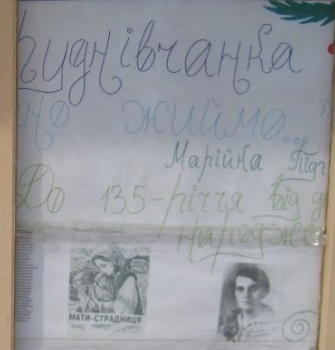 гуднівчанка
но жиймо...
Марійка Підг
До 135-річчя від д
народж
МАТИ-СТРАДНИЦЯ